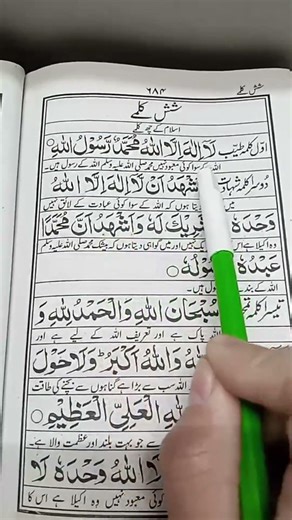 شش کلمے ۶۸۴
شش کلمے
اسلام کے چھ کلمے
اوّل کلمہ طیّب لَآ اِلٰهَ اِلَّا اللّٰهُ مُحَمَّدٌ رَّسُوْلُ اللّٰهِ
اللہ کے سوا کوئی معبود نہیں محمد صلی اللہ علیہ وسلم اللہ کے رسول ہیں۔
دوسرا کلمہ شہادت اَشْهَدُ اَنْ لَّآ اِلٰهَ اِلَّا اللّٰهُ
میں دیتا ہوں کہ اللہ کے سوا کوئی عبادت کے لائق نہیں
وَحْدَهٗ شَرِيْكَ لَهٗ وَاَشْهَدُ اَنَّ مُحَمَّدًا
وہ اکیلا ہے اس نہیں اور میں گواہی دیتا ہوں کہ بیشک محمد صلی اللہ علیہ وسلم
عَبْدُهٗ
اللہ کے
تیسرا کلمہ سُبْحَانَ اللّٰهِ وَالْحَمْدُ لِلّٰهِ وَ
اللہ پاک ہے اور تعریف اللہ کے لیے ہے اور
وَاللّٰهُ اَكْبَرُ وَلَا حَوْلَ
اللہ سب سے بڑا ہے گناہوں سے بچنے کی طاقت
الْعَلِيِّ الْعَظِيْمِ
جو بہت بلند اور عظمت والا ہے۔
اللّٰهُ وَحْدَهٗ لَا
کوئی معبود نہیں وہ اکیلا ہے اس کا